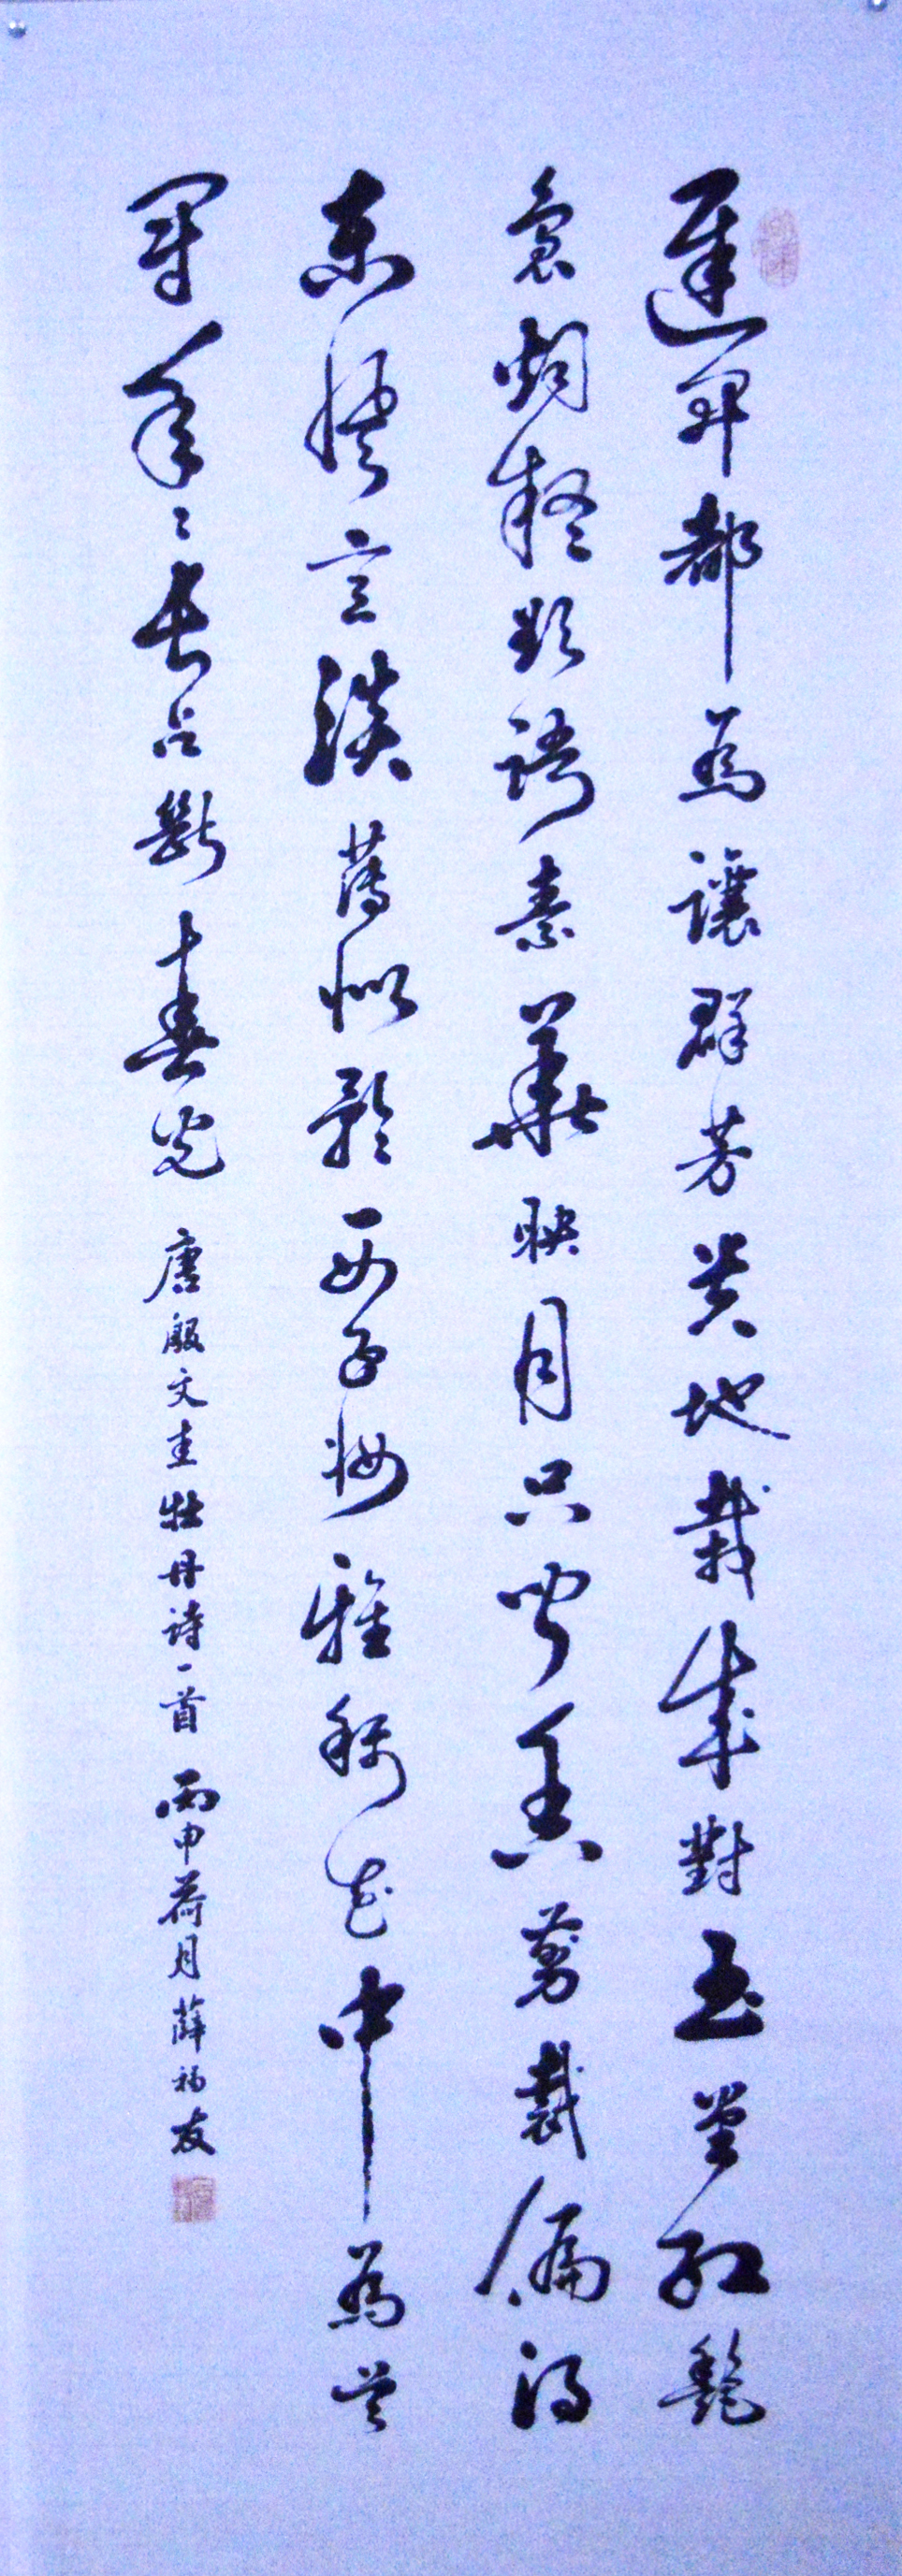 遲開都為讓群芳貴地栽成對玉堂紅艷
裊烟疑欲語素華映月只聞香剪裁偏得
東風意淡薄似矜西子妝雅稱花中為首
冠年々長占斷春光 唐殷文圭牡丹詩一首 丙申荷月薛福友